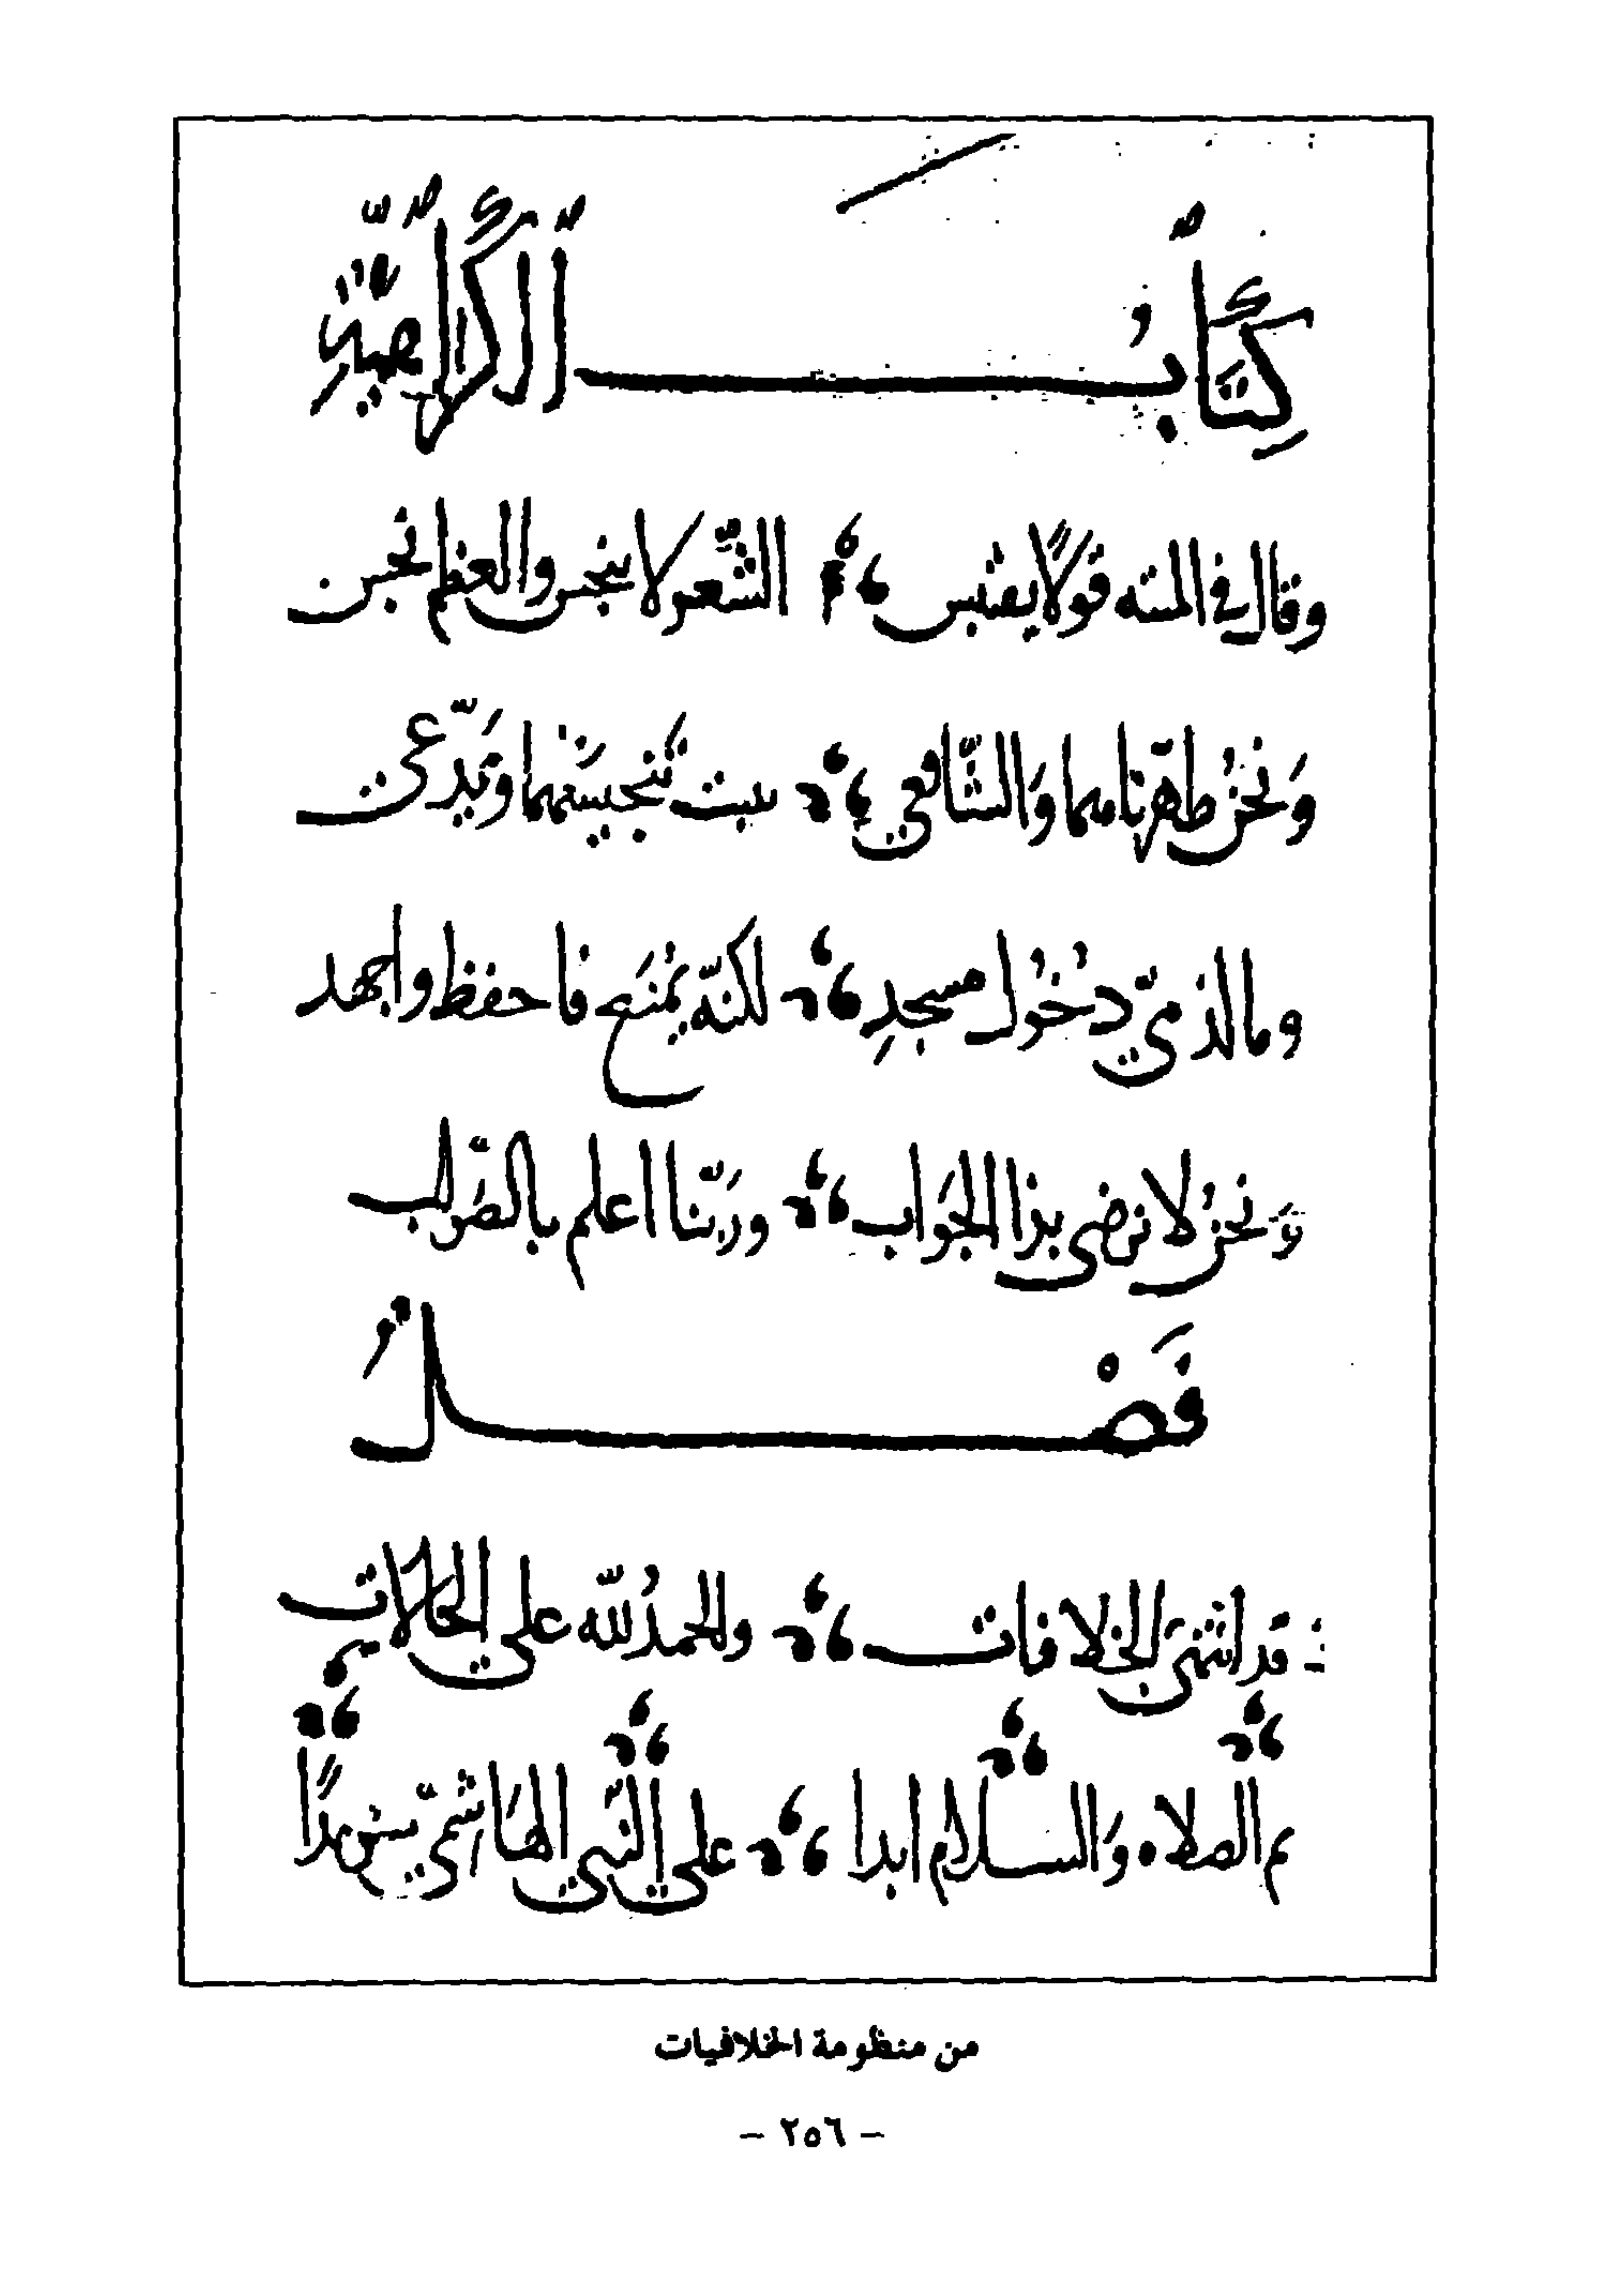 كِتَابُ الْكَرَاهِيَّةِ
وقال في الميته قولاً يقتبس الشّعر لا ينجس والعظم نجس
وَنحنُ طهّرناهما وَالشّافعي يثبت تنجيسَهما وَيَدّعي
وما لذمّيّ دخُول مسجدِ لكنّه يُمنَع فاحفظ واجهد
وَنحنُ لا نرضى بذا الجَواب وربّنا اعلم بالصّوَاب
فَصْلٌ
قد انتهىَ الخلافات والحمدُ للّه علي الحالات
ثم الصلاه وَالسلام ابدا علي النّبيّ الهَاشميّ سرمداً
من منظومة الخلافيات
- ٢٥٦ -